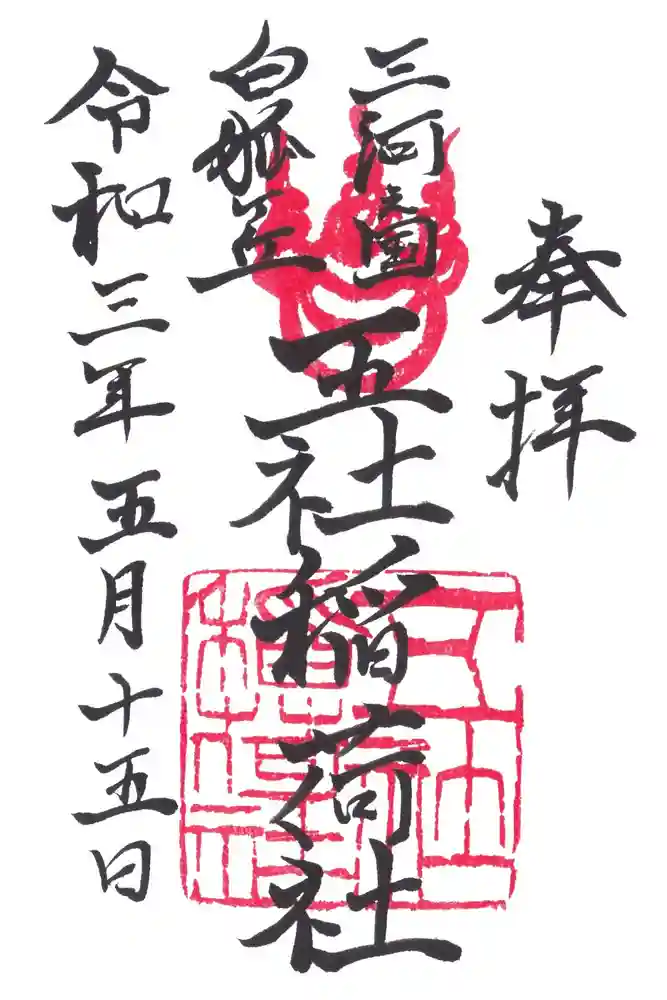 奉拝
三河國
白狐丘
五社稲荷社
令和三年五月十五日